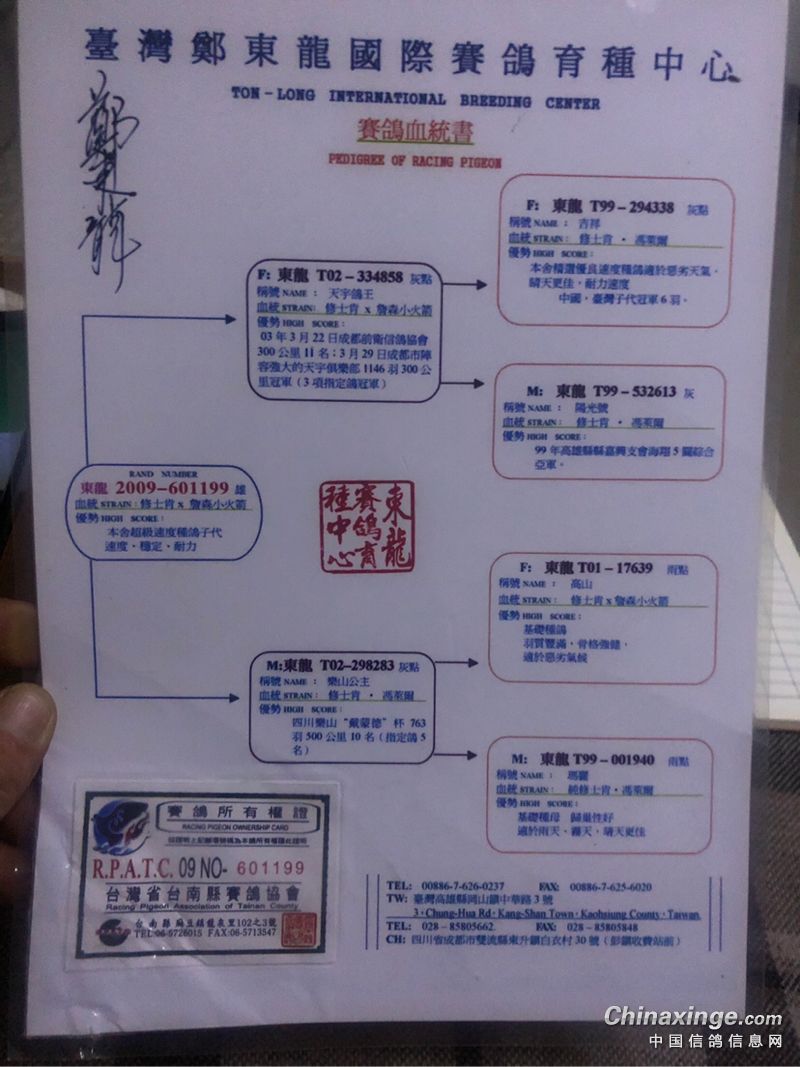 臺灣鄭東龍國際賽鴿育種中心
TON-LONG INTERNATIONAL BREEDING CENTER
賽鴿血統書
PEDIGREE OF RACING PIGEON
鄭東龍
F: 東龍 T99-294338 灰點
稱號 NAME : 吉祥
血統 STRAIN: 修士肯・馮萊爾
優勢 HIGH SCORE:
本舍精選優良速度種鴿適於惡劣天氣。
晴天更佳, 耐力速度
中國, 臺灣子代冠軍 6 羽。
F: 東龍 T02-334858 灰點
稱號 NAME : 天宇鴿王
血統 STRAIN: 修士肯 x 詹森小火箭
優勢 HIGH SCORE:
03 年 3 月 22 日成都前衛信鴿協會
300 公里 11 名; 3 月 29 日成都市陣
容強大的天宇俱樂部 1146 羽 300 公
里冠軍 (3 項指定鴿冠軍)
M: 東龍 T99-532613 灰
稱號 NAME : 陽光號
血統 STRAIN: 修士肯・馮萊爾
優勢 HIGH SCORE:
99 年高雄縣縣嘉興支會海翔 5 關綜合
亞軍。
RAND NUMBER
東龍 2009-601199 雄
血統 STRAIN: 修士肯 x 詹森小火箭
優勢 HIGH SCORE:
本舍超級速度種鴿子代
速度・穩定・耐力
東龍
賽鴿育
種中心
F: 東龍 T01-17639 雨點
稱號 NAME : 高山
血統 STRAIN: 修士肯 x 詹森小火箭
優勢 HIGH SCORE:
基礎種鴿
羽質豐滿, 骨格強健,
適於惡劣氣候
M:東龍 T02-298283 灰點
稱號 NAME : 樂山公主
血統 STRAIN: 修士肯・馮萊爾
優勢 HIGH SCORE:
四川樂山“戴蒙德”杯 763
羽 500 公里 10 名 (指定鴿 5
名)
M: 東龍 T99-001940 雨點
稱號 NAME : 瑪麗
血統 STRAIN: 純修士肯・馮萊爾
優勢 HIGH SCORE:
基礎種母 歸巢性好
適於雨天、霧天, 晴天更佳
賽鴿所有權證
RACING PIGEON OWNERSHIP CARD
R.P.A.T.C. 09 NO- 601199
台灣省台南縣賽鴿協會
Racing Pigeon Association of Tainan County
台南縣麻豆鎮龍泉里102之3號
TEL:06-5726015 FAX:06-5713547
TEL: 00886-7-626-0237 FAX: 00886-7-625-6020
TW: 臺灣高雄縣岡山鎮中華路 3 號
3, Chung-Hua Rd, Kang-Shan Town, Kaohsiung County, Taiwan.
TEL: 028-85805662 FAX: 028-85805848
CH: 四川省成都市雙流縣東升鎮白衣村 30 號 (彭鎮收費站前)
Chinaxinge.com
中国信鸽信息网